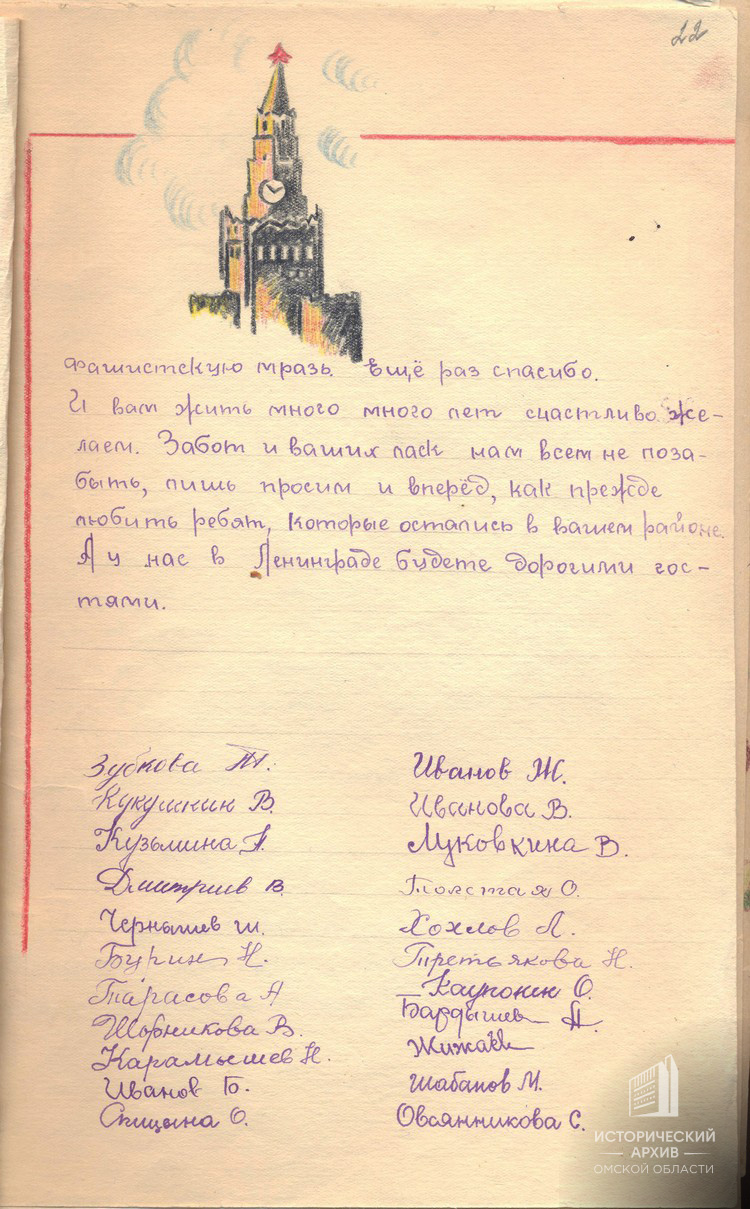 22
фашистскую мразь. Ещё раз спасибо.
И вам жить много много лет счастливо же-
лаем. Забот и ваших ласк нам всем не поза-
быть, лишь просим и вперёд, как прежде
любить ребят, которые остались в вашем районе.
А у нас в Ленинграде будете дорогими гос-
тями.
Зубкова Т.
Кукушкин В.
Кузьмина
Дмитриев В.
Чернышев Ш.
Бурин Н.
Тарасова А
Шорникова В.
Карамышев Н.
Иванов Б.
Спицына О.
Иванов Ж.
Иванова В.
Луковкина В.
Толстая О.
Хохлов Л.
Третьякова Н.
Каупонен О.
Бардышев А.
Жижаев
Шабанов М.
Овсянникова С.
ИСТОРИЧЕСКИЙ
АРХИВ
ОМСКОЙ ОБЛАСТИ